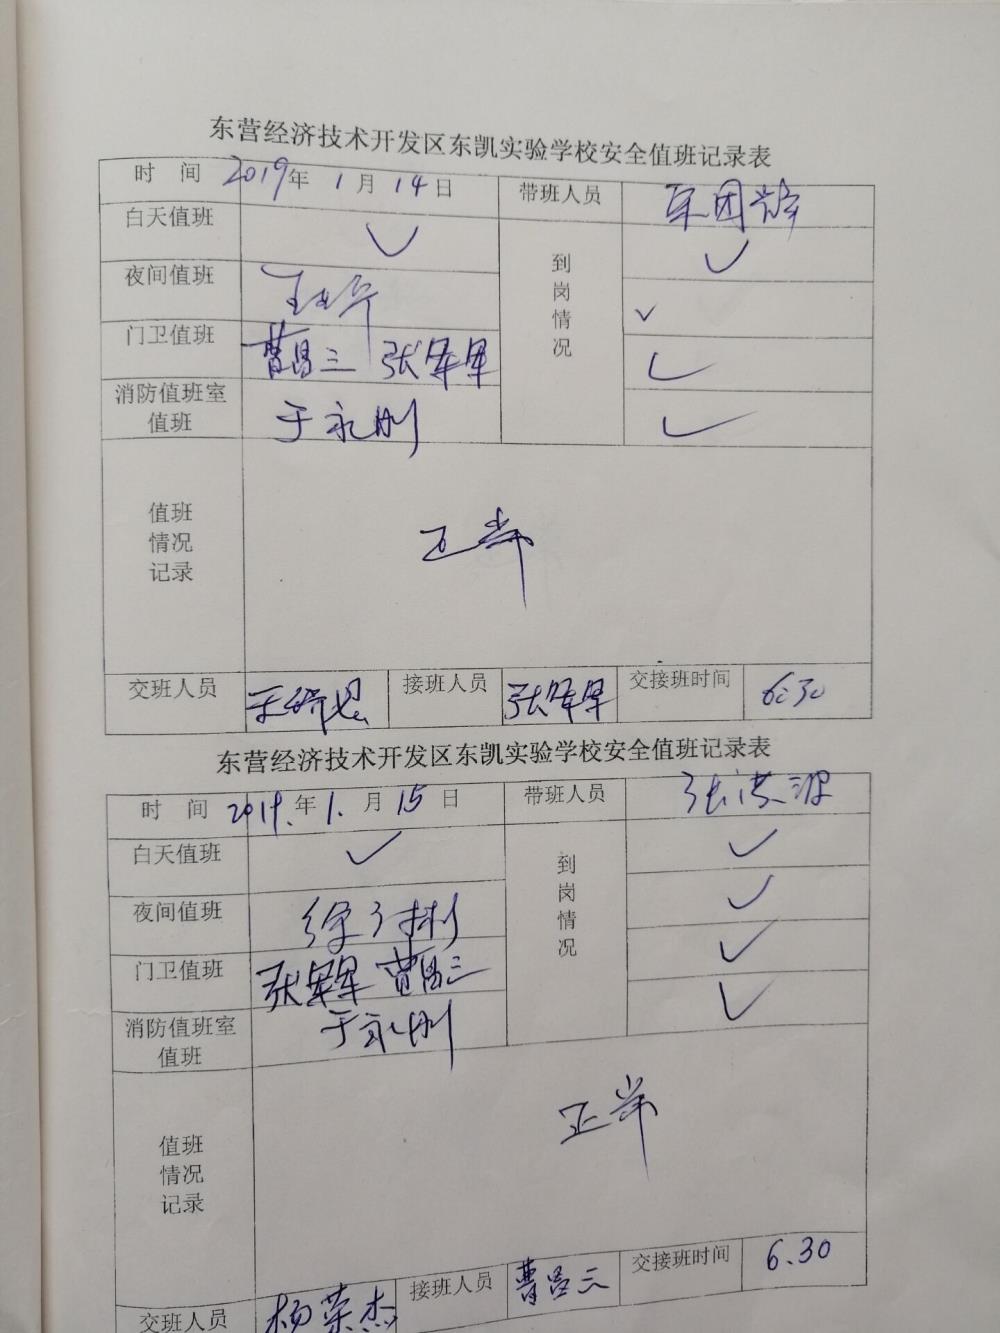 东营经济技术开发区东凯实验学校安全值班记录表
时 间 2019年 1月 14日 带班人员
白天值班 ✓ 到岗情况 ✓
夜间值班 ✓
门卫值班 曹昌三 张军军 ✓
消防值班室值班 于永刚 ✓
值班情况记录 正常
交班人员 接班人员 张军军 交接班时间 6:30
东营经济技术开发区东凯实验学校安全值班记录表
时 间 2019.年 1.月 15日 带班人员 张洪波
白天值班 ✓ 到岗情况 ✓
夜间值班 ✓
门卫值班 张军军 曹昌三 ✓
消防值班室值班 于永刚 ✓
值班情况记录 正常
交班人员 杨荣杰 接班人员 曹昌三 交接班时间 6.30